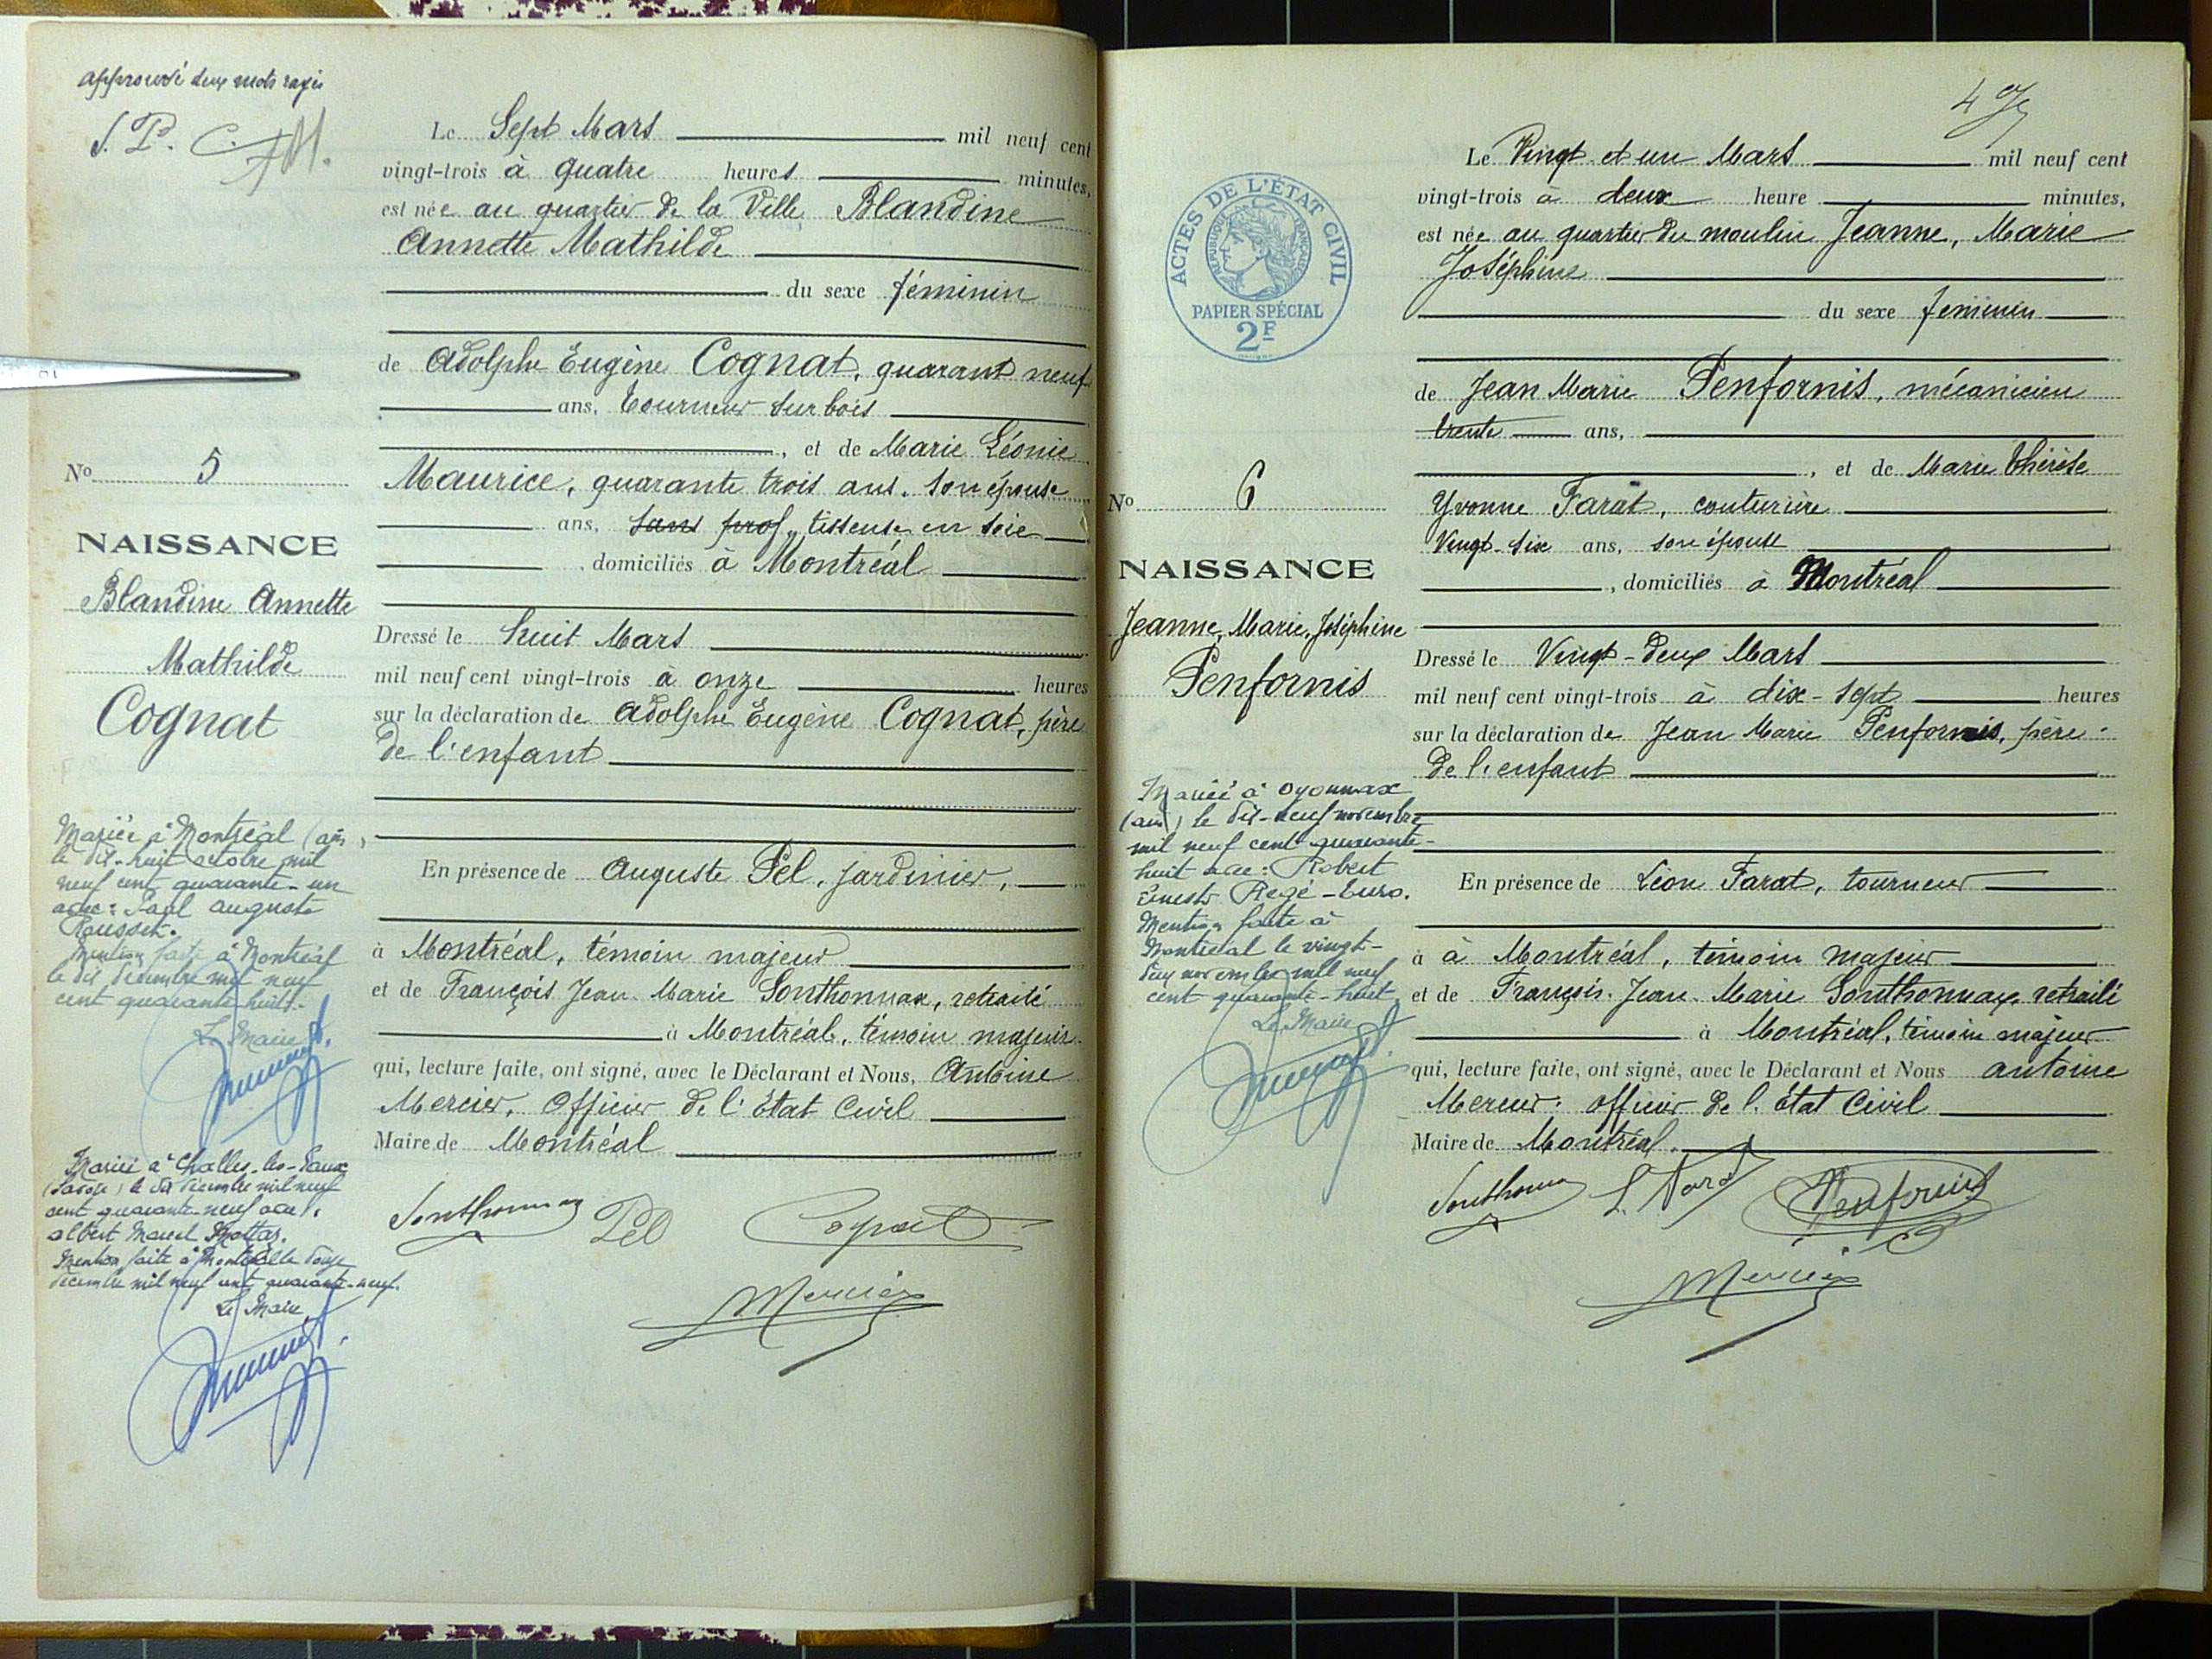 approuvé deux mots rayés
S. P. C. AM.
Le Sept Mars mil neuf cent
vingt-trois à quatre heures minutes,
est née au quartier de la Ville Blandine
Annette Mathilde
du sexe féminin
de Adolphe Eugène Cognat, quarant neuf
ans, tourneur sur bois
, et de Marie Léonie
Maurice, quarante trois ans. son épouse
ans, sans prof, tisseuse en soie
, domiciliés à Montréal
Dressé le huit Mars
mil neuf cent vingt-trois à onze heures
sur la déclaration de Adolphe Eugène Cognat, père
de l'enfant
En présence de Auguste Pel, jardinier,
à Montréal, témoin majeur
et de François Jean Marie Sonthonnax, retraité
à Montréal, témoin majeur
qui, lecture faite, ont signé, avec le Déclarant et Nous, Antoine
Mercier, Officier de l'État Civil
Maire de Montréal
Sonthonnax Pel Cognat
Mercier
No 5
NAISSANCE
Blandine Annette
Mathilde
Cognat
Mariée à Montréal (ain,
le dix-huit octobre mil
neuf cent quarante-un
avec: Paul Auguste
Rousset.
Mention faite à Montréal
le dix décembre mil neuf
cent quarante huit.
Le Maire
Mariée à Challes-les-Eaux
(Savoie) le dix décembre mil neuf
cent quarante-neuf avec:
albert Marcel Mottas.
Mention faite à Montréal le douze
décembre mil neuf cent quarante-neuf.
Le Maire
47
ACTES DE L'ÉTAT CIVIL
RÉPUBLIQUE FRANÇAISE
PAPIER SPÉCIAL
2F
Le Vingt et un Mars mil neuf cent
vingt-trois à deux heure minutes,
est née au quartier du moulin Jeanne, Marie
Joséphine
du sexe féminin
de Jean Marie Penfornis, mécanicien
trente ans,
, et de Marie Thérèse
Yvonne Farat, couturière
Vingt-six ans, son épouse
, domiciliés à Montréal
Dressé le Vingt-deux Mars
mil neuf cent vingt-trois à dix-sept heures
sur la déclaration de Jean Marie Penfornis, père
de l'enfant
En présence de Léon Farat, tourneur
à à Montréal, témoin majeur
et de François Jean Marie Sonthonnax, retraité
à Montréal, témoin majeur
qui, lecture faite, ont signé, avec le Déclarant et Nous antoine
Mercier. officier de l'état Civil
Maire de Montréal.
Sonthonnax L. Farat Penfornis
Mercier
No 6
NAISSANCE
Jeanne, Marie, Joséphine
Penfornis
Mariée à Oyonnax
(ain) le dix-neuf novembre
mil neuf cent quarante-
huit avec: Robert
Ernest Regé-Turo.
Mention faite à
Montréal le vingt-
deux novembre mil neuf
cent quarante-huit
Le Maire